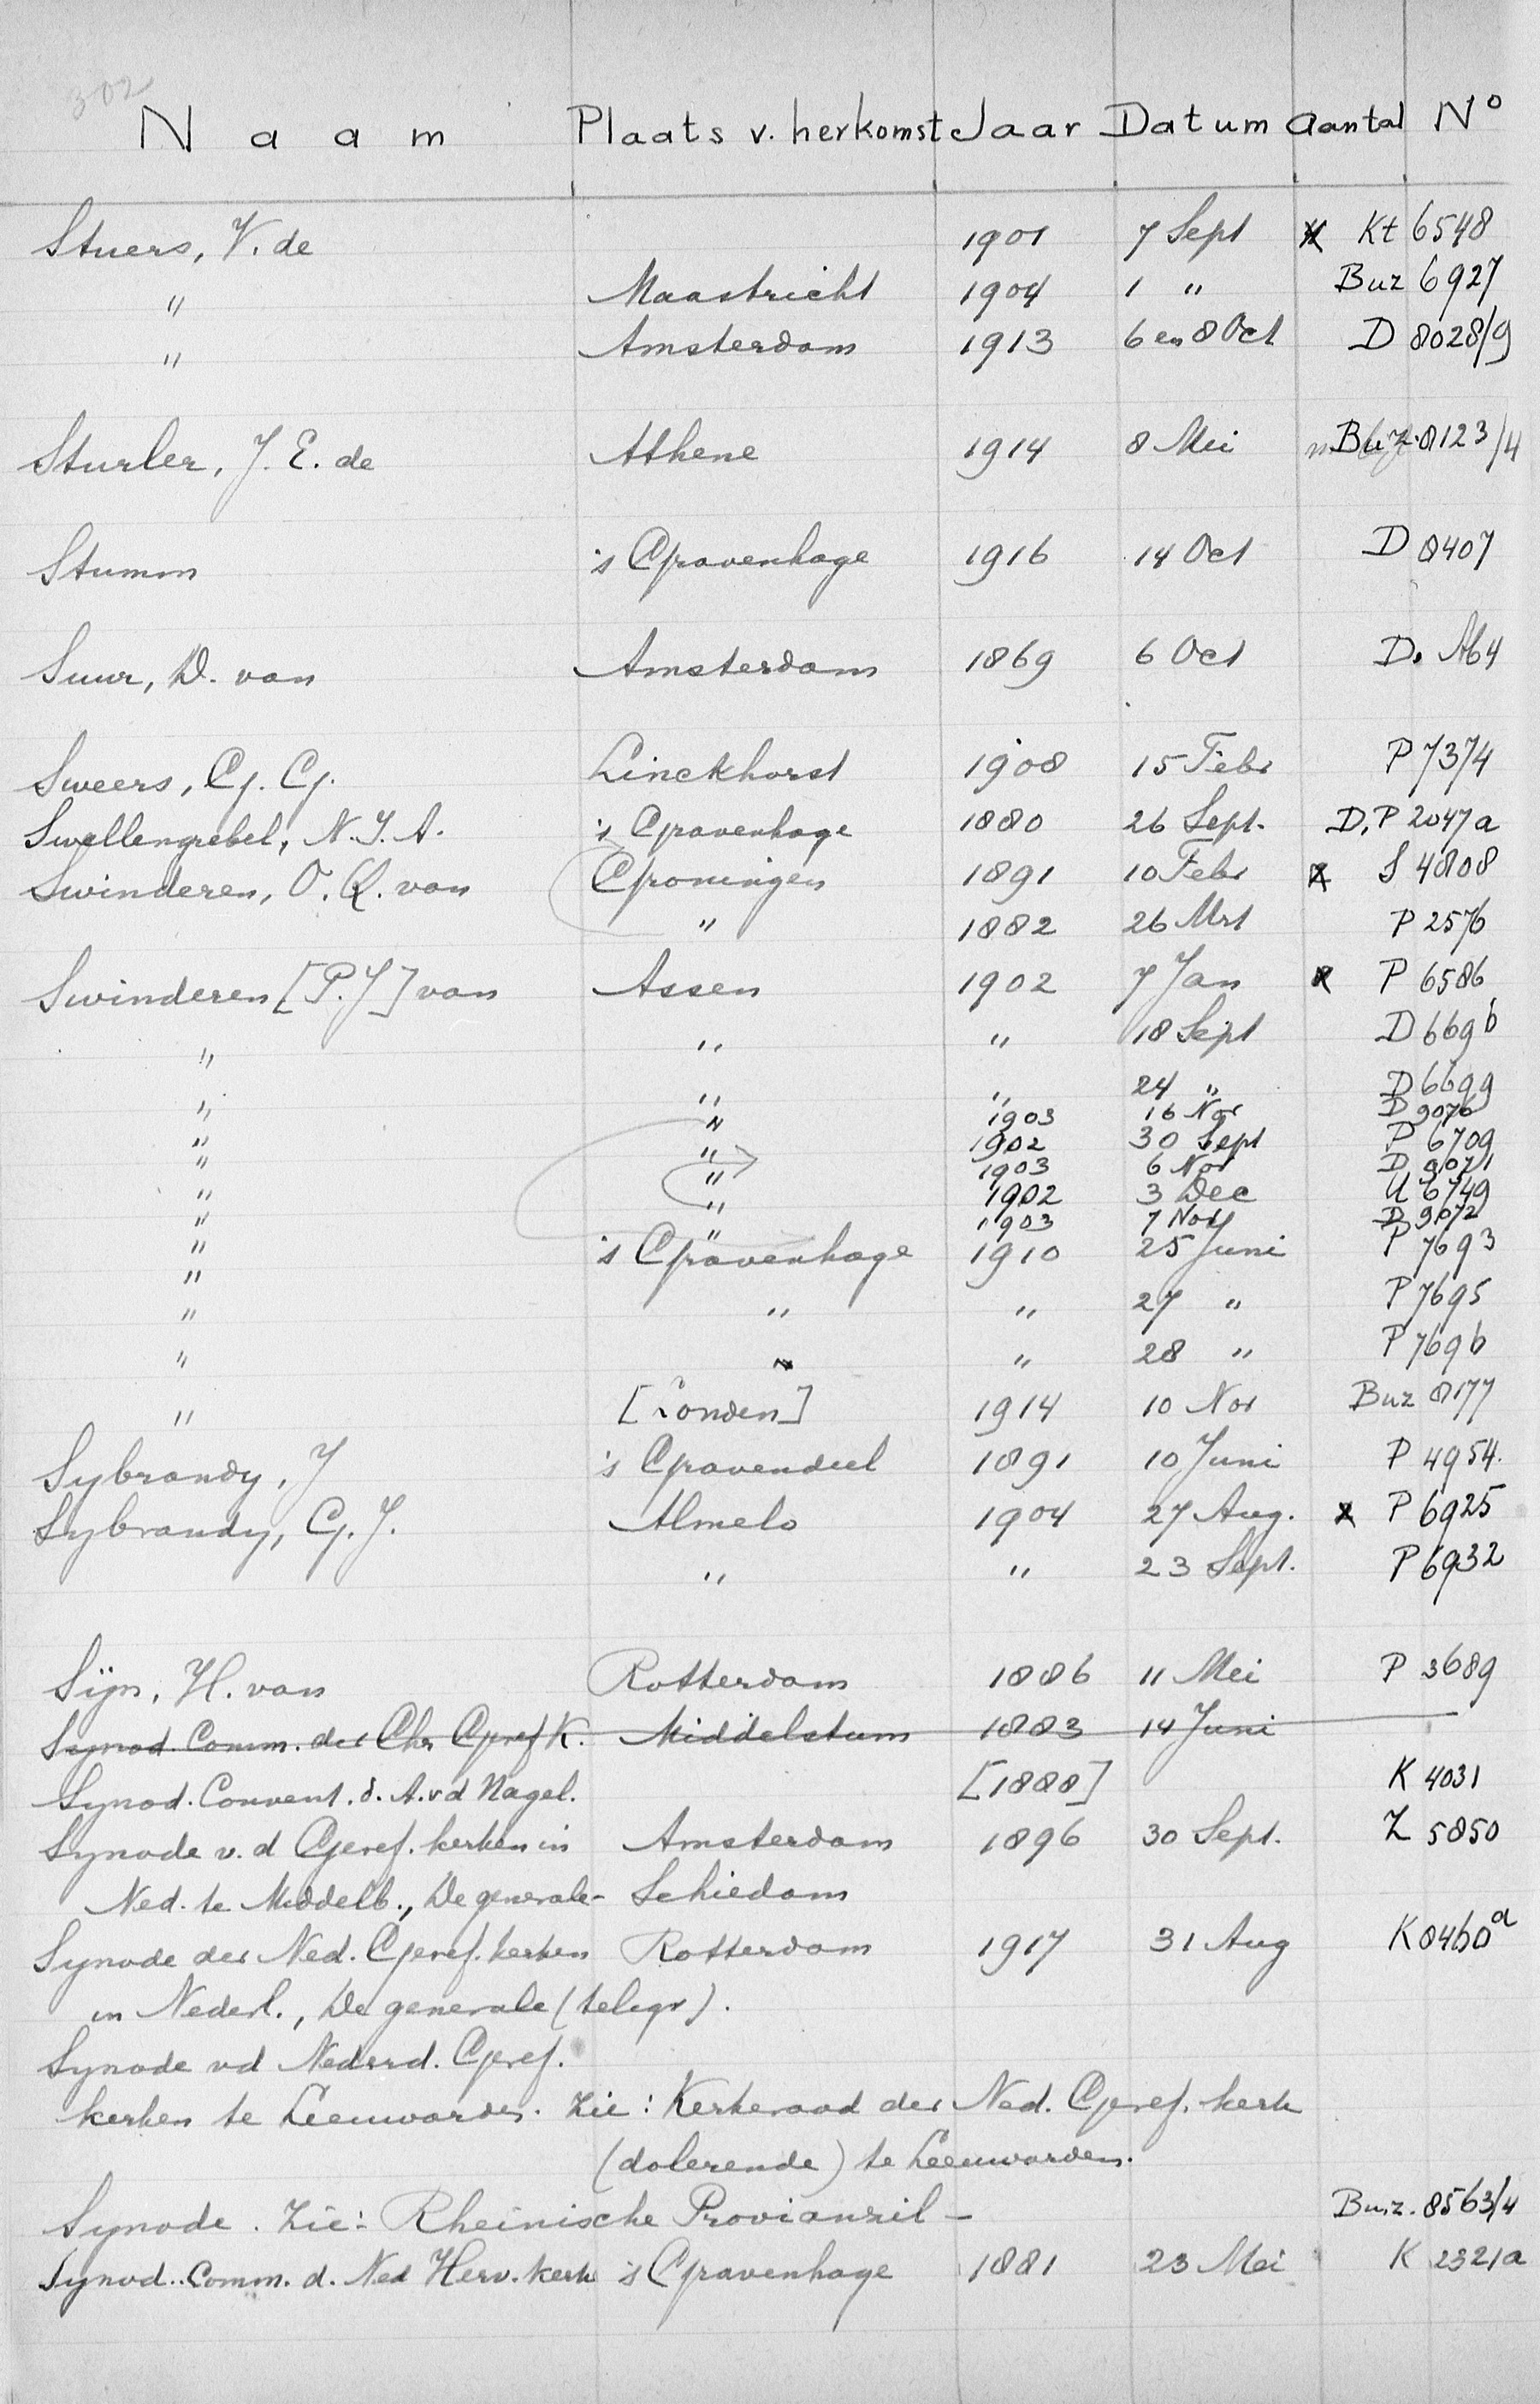 302
Naam Plaats v. herkomst Jaar Datum aantal No
Stuers, V. de 1901 7 Sept Kt 6548
" Maastricht 1904 1 " Buz 6927
" Amsterdam 1913 6 en 8 Oct D 8028/9
Sturler, J. E. de Athene 1914 8 Mei Buz. 8123/4
Stumm 's Gravenhage 1916 14 Oct D 8407
Suur, D. van Amsterdam 1869 6 Oct D. A64
Sweers, G. G. Linckhorst 1908 15 Febr P 7374
Swellengrebel, N. J. A. 's Gravenhage 1880 26 Sept. D, P 2047a
Swinderen, O. Q. van Groningen 1891 10 Febr S 4808
" 1882 26 Mrt P 2576
Swinderen [P. J] van Assen 1902 7 Jan P 6586
" " " 18 Sept D 6696
" " " 24 " D 6699
" " 1903 16 Nov D 9076
" " 1902 30 Sept P 6709
" " 1903 6 Nov D 9071
" " 1902 3 Dec U 6749
" " 1903 7 Nov D 9072
" 's Gravenhage 1910 25 Juni P 7693
" " " 27 " P 7695
" " " 28 " P 7696
" [Londen] 1914 10 Nov Buz 8177
Sybrandy, J 's Gravendeel 1891 10 Juni P 4954.
Sybrandy, G. J. Almelo 1904 27 Aug. P 6925
" " 23 Sept. P 6932
Sijn, H. van Rotterdam 1886 11 Mei P 3689
Synod. Comm. der Chr Geref K. Middelstum 1883 14 Juni
Synod. Convent. d. A. v d Nagel. [1888] K 4031
Synode v. d Geref. kerken in Amsterdam 1896 30 Sept. Z 5850
Ned. te Middelb., De generale - Schiedam
Synode der Ned. Geref. kerken Rotterdam 1917 31 Aug K 8460a
in Nederl., De generale (telegr).
Synode vd Nederd. Geref.
kerken te Leeuwarden. Zie: Kerkeraad der Ned. Geref. kerk
(dolerende) te Leeuwarden.
Synode. Zie: Rheinische Provianzil - Buz. 8563/4
Synod. Comm. d. Ned Herv. kerk 's Gravenhage 1881 23 Mei K 2321a